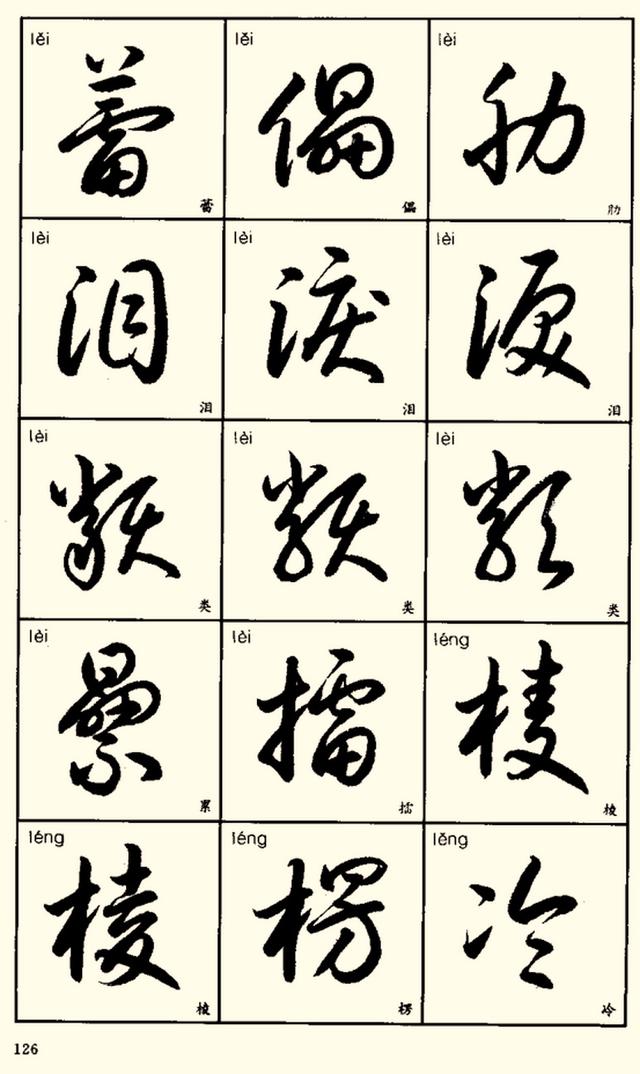 lěi lěi lèi
蕾 儡 肋
蕾 儡 肋
lèi lèi lèi
泪 淚 泪
泪 泪 泪
lèi lèi lèi
类 类 类
lèi lèi léng
纍 擂 棱
累 擂 棱
léng léng lěng
棱 楞 冷
棱 楞 冷
126